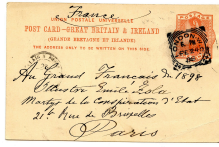 France
UNION POSTALE UNIVERSELLE
POST CARD - GREAT BRITAIN & IRELAND
(GRANDE BRETAGNE ET IRLANDE)
THE ADDRESS ONLY TO BE WRITTEN ON THIS SIDE.
LONDON
Au Grand Français de 1898
Emile Zola
Martyr de la Conspiration d'Etat
21 bis Rue de Bruxelles
Paris